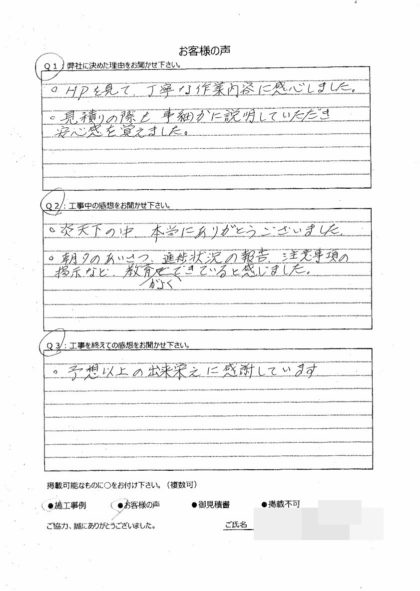 お客様の声
Q1：弊社に決めた理由をお聞かせ下さい。
。HPを見て、丁寧な作業内容に感心しました。
。見積りの際も 事細かに説明していただき
安心感を覚えました。
Q2：工事中の感想をお聞かせ下さい。
。炎天下の中、本当にありがとうございました。
。朝夕のあいさつ、進捗状況の報告、注意事項の
掲示など、教育できていると感じました。
がよく
Q3：工事を終えての感想をお聞かせ下さい。
。予想以上の出来栄えに感謝しています
掲載可能なものに○をお付け下さい。（複数可）
●施工事例 ●お客様の声 ●御見積書 ●掲載不可
ご協力、誠にありがとうございました。 ご氏名